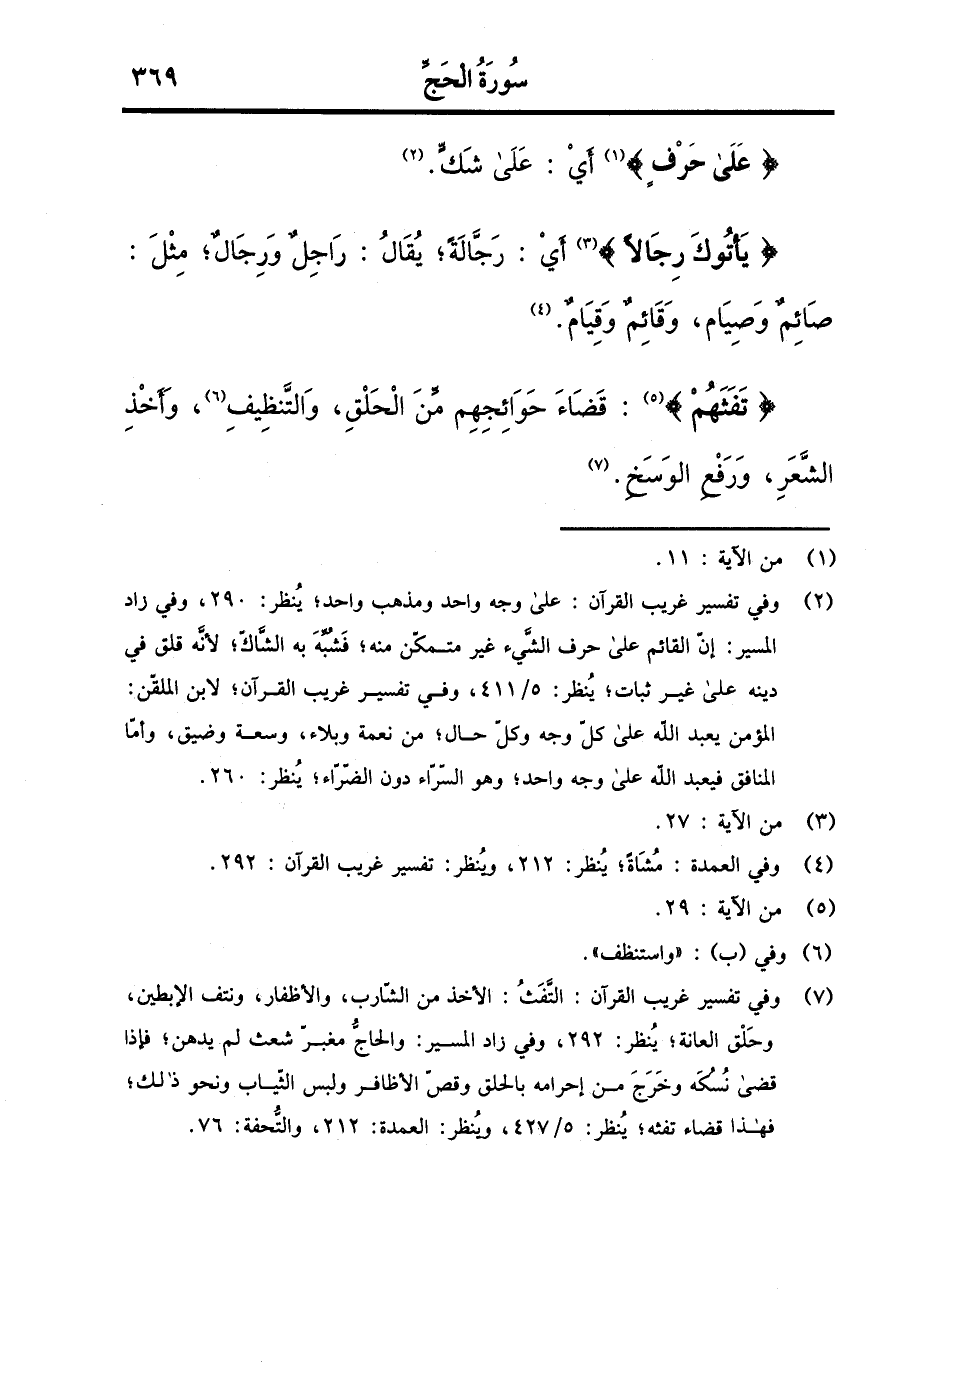 سُورَةُ الْحَجِّ ٣٦٩
﴿ عَلَىٰ حَرْفٍ ﴾(١) أَيْ : عَلَىٰ شَكٍّ.(٢)
﴿ يَأْتُوكَ رِجَالاً ﴾(٣) أَيْ : رَجَّالَةً؛ يُقَالُ : رَاجِلٌ وَرِجَالٌ؛ مِثْلَ :
صَائِمٌ وَصِيَام، وَقَائِمٌ وَقِيَامٌ.(٤)
﴿ تَفَثَهُمْ ﴾(٥) : قَضَاءَ حَوَائِجِهِم مِّنَ الْحَلْقِ، وَالتَّنظِيفِ(٦)، وَأَخْذِ
الشَّعَرِ، وَرَفْعِ الوَسَخِ.(٧)
(١) من الآية : ١١.
(٢) وفي تفسير غريب القرآن : علىٰ وجه واحد ومذهب واحد؛ يُنظر: ٢٩٠، وفي زاد
المسير: إنّ القائم علىٰ حرف الشّيء غير متـمكّن منه؛ فَشُبِّهَ به الشّاكّ؛ لأنّه قلق في
دينه علىٰ غيـر ثبات؛ يُنظر: ٤١١/٥، وفـي تفسيـر غريب القـرآن؛ لابن الملقّن:
المؤمن يعبد اللّه علىٰ كلّ وجه وكلّ حـال؛ من نعمة وبلاء، وسعـة وضيق، وأمّا
المنافق فيعبد اللّه علىٰ وجه واحد؛ وهو السّرّاء دون الضّرّاء؛ يُنظر: ٢٦٠.
(٣) من الآية : ٢٧.
(٤) وفي العمدة : مُشَاةً؛ يُنظر: ٢١٢، ويُنظر: تفسير غريب القرآن : ٢٩٢.
(٥) من الآية : ٢٩.
(٦) وفي (ب) : «واستنظف».
(٧) وفي تفسير غريب القرآن : التَّفَثُ : الأخذ من الشّارب، والأظفار، ونتف الإبطين،
وحَلْق العانة؛ يُنظر: ٢٩٢، وفي زاد المسـير: والحاجُّ مغبـرّ شعث لم يدهن؛ فإذا
قضىٰ نُسُكَه وخَرَجَ مـن إحرامه بالحلق وقصّ الأظافـر ولبس الثّيـاب ونحو ذٰلـك؛
فهـٰذا قضاء تفثه؛ يُنظر: ٤٢٧/٥، ويُنظر: العمدة: ٢١٢، والتُّحفة: ٧٦.